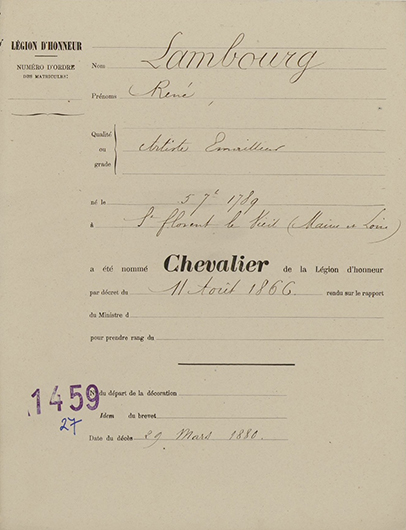 LÉGION D'HONNEUR
NUMÉRO D'ORDRE
DES MATRICULES:
Nom Lambourg
Prénoms René
Qualité
ou
grade
Artiste Emailleur
né le 5 7e 1789
à St florent le Vieil (Maine et Loire)
a été nommé Chevalier de la Légion d'honneur
par décret du 11 Août 1866. rendu sur le rapport
du Ministre d
pour prendre rang du
1459
27
Nos du départ de la décoration
Idem du brevet
Date du décès 29 Mars 1880.